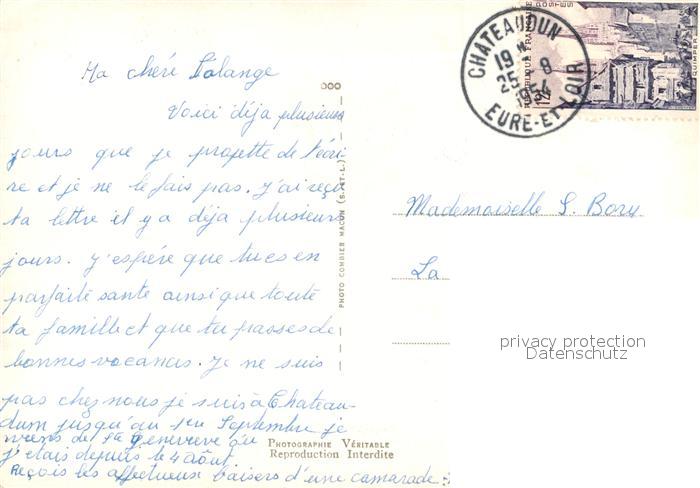 Ma chéré Solange
Voici déja plusieurs
jours que je projette de t'écri-
re et je ne le fais pas. J'ai reçu
ta lettre il y a déja plusieurs
jours. J'espére que tu es en
parfaite santé ainsi que toute
ta famille et que tu passes de
bonnes vacances. Je ne suis
pas chez nous je suis à Chateau-
dum jusqu'au 1er Septembre je
viens de Ste Geneviève où
j'étais depuis le 4 Août
Reçois les affectueux baisers d'une camarade
PHOTO COMBIER MACON (S.-ET-L.)
CHATEAUDUN
19 H
25 - 8
1954
EURE-ET-LOIR
REPUBLIQUE FRANÇAISE
POSTES
QUIMPER
Mademoiselle S. Bory
La
privacy protection
Datenschutz
PHOTOGRAPHIE VÉRITABLE
Reproduction Interdite